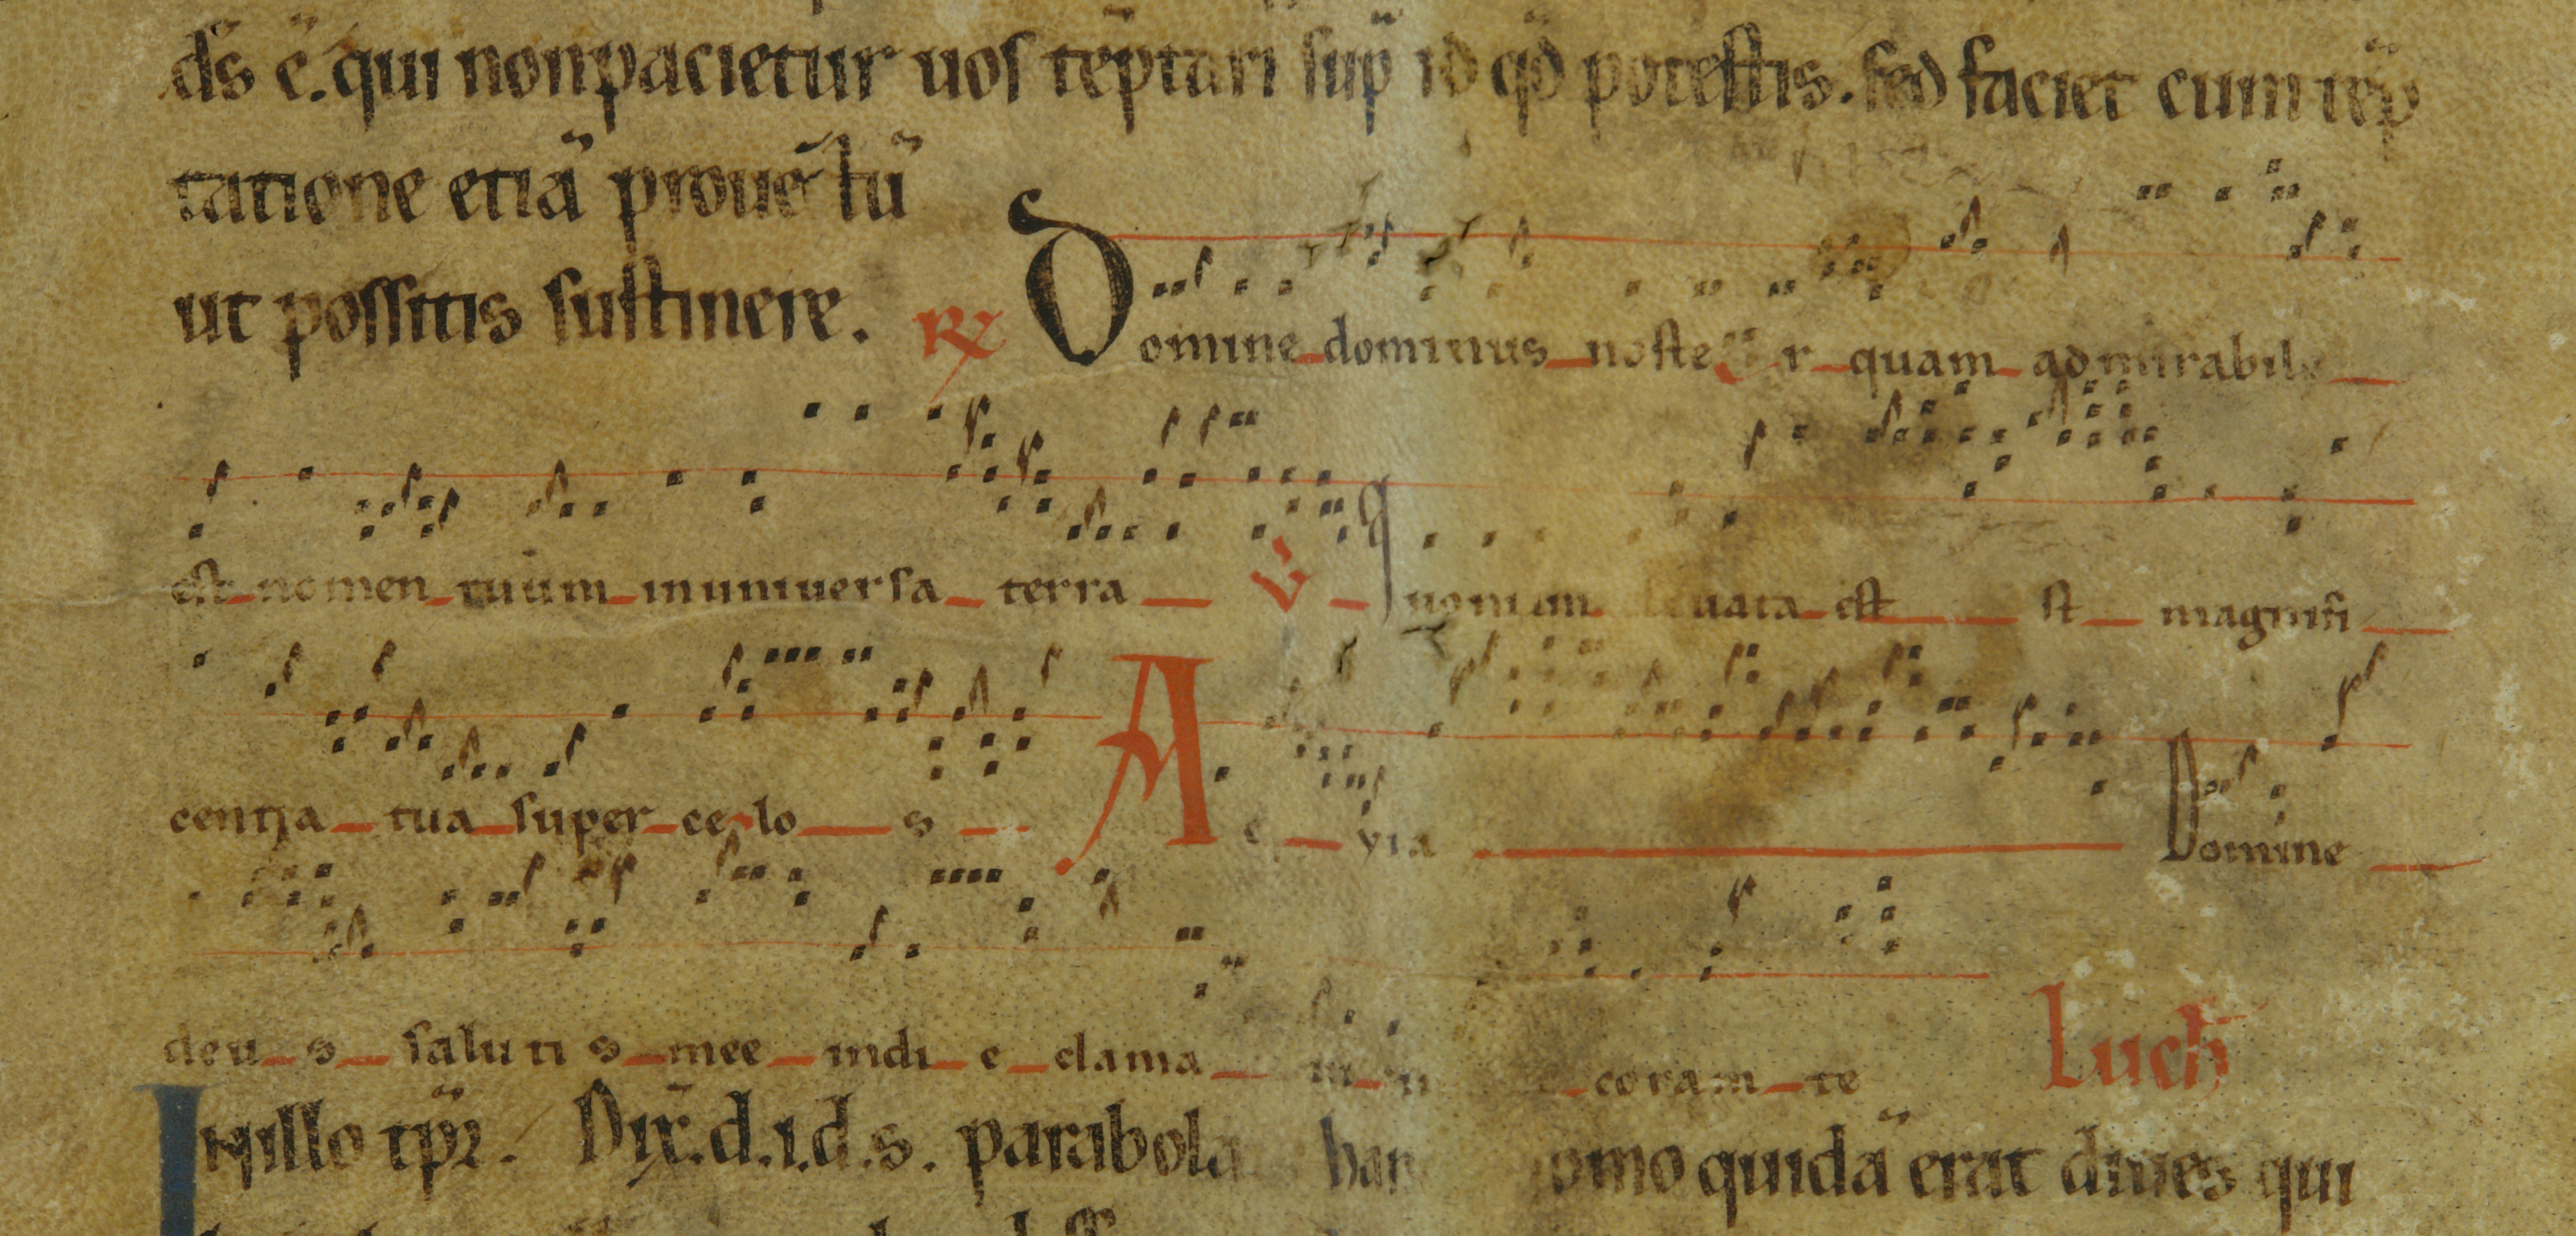 ds̄ ē. qui non pacietur uos tēptari sup̄ id qd̄ potestis. sed faciet cum tēp
tatione etiā prouētū
ut possitis sustinere. R̷ Domine dominus noster quam admirabile
est nomen tuum in uniuersa terra V̷ Quoniam leuata est st magnifi
centia tua super celos A e yia Domine
deus salutis mee in die clama coram te Luch̄
In illo tp̄r. Dix̄. d.i.d.s. parabola han omo quidā erat diues qui